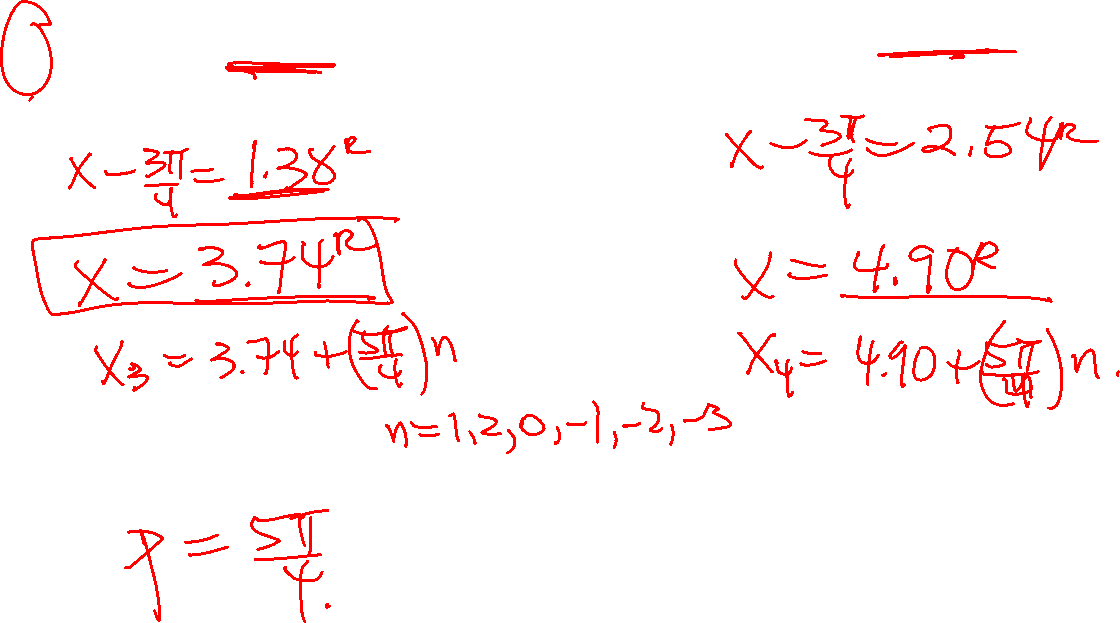 x - 3π/4 = 1.38ᴿ
x = 3.74ᴿ
x₃ = 3.74 + (5π/4)n
x - 3π/4 = 2.54ᴿ
x = 4.90ᴿ
x₄ = 4.90 + (5π/4)n.
n = 1, 2, 0, -1, -2, -3
p = 5π/4.